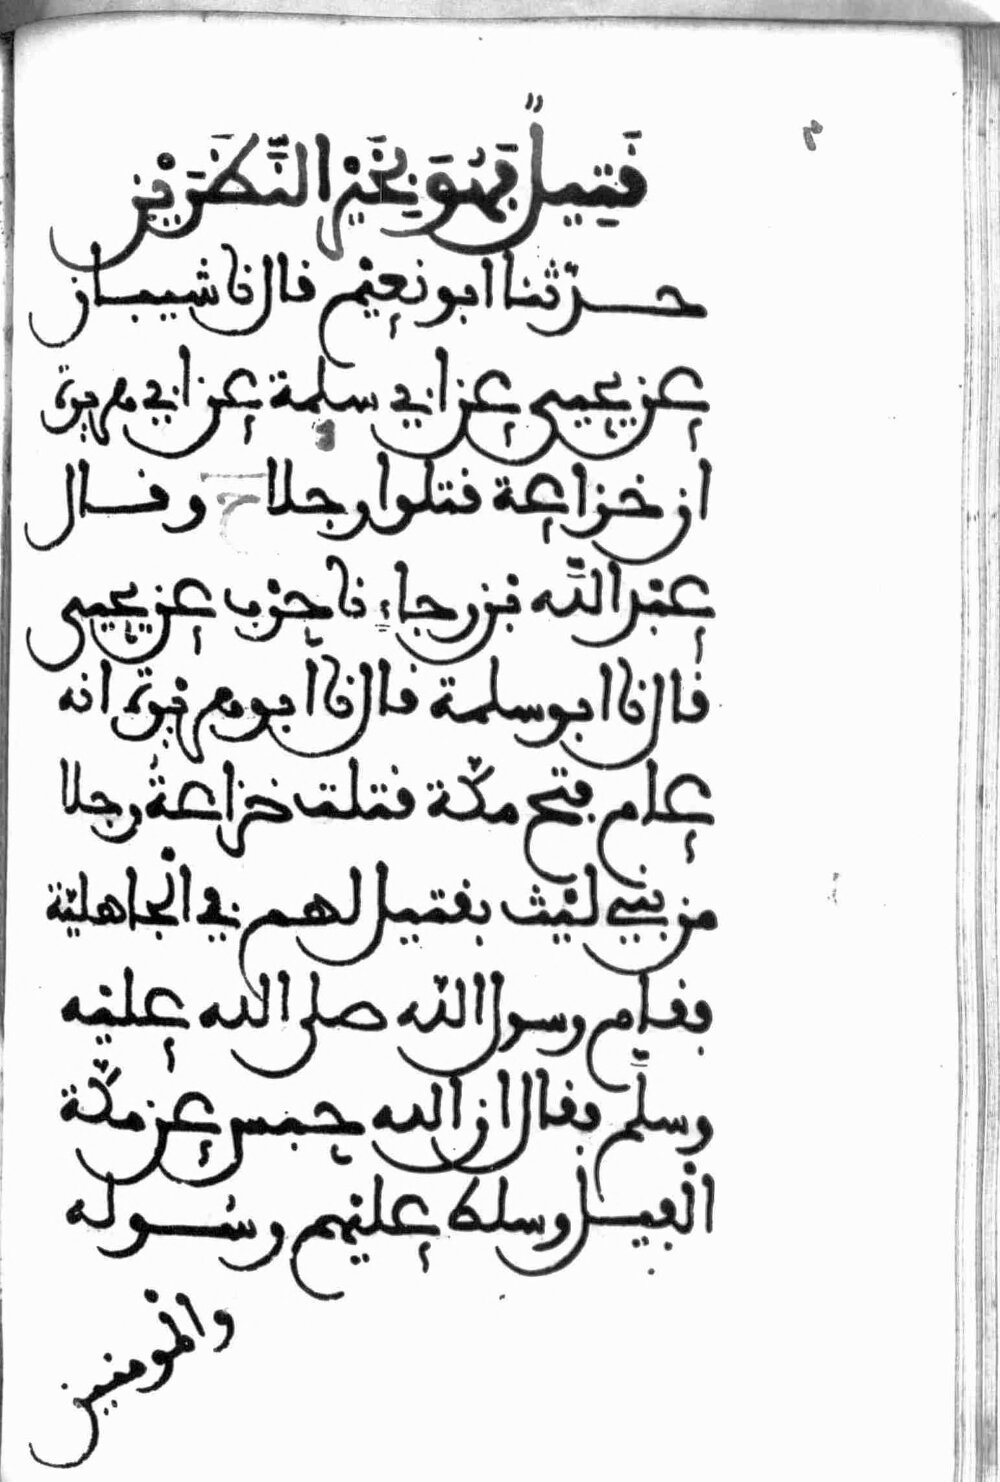 قَتِيلٌ فَهُوَ بِخَيْرِ النَّظَرَيْنِ
حدّثنا ابو نعيْم قال نا شيبان
عن يحيى عن ابي سلمة عن ابي هريرة
ان خزاعة قتلوا رجلا ح وقال
عبْد اللّه بْن رجاء نا حرْب عن يحيى
قال نا ابو سلمة قال نا أبو هريْرة انه
عام فتح مكّة قتلت خزاعةُ رجلا
من بني ليْث بقتيل لهم في الْجاهليّة
فقام رسول اللّه صلى الله عليْه
وسلّم فقال ان الله حبس عن مكّة
الْفيل وسلط عليْهم رسُوله
والْمومنين